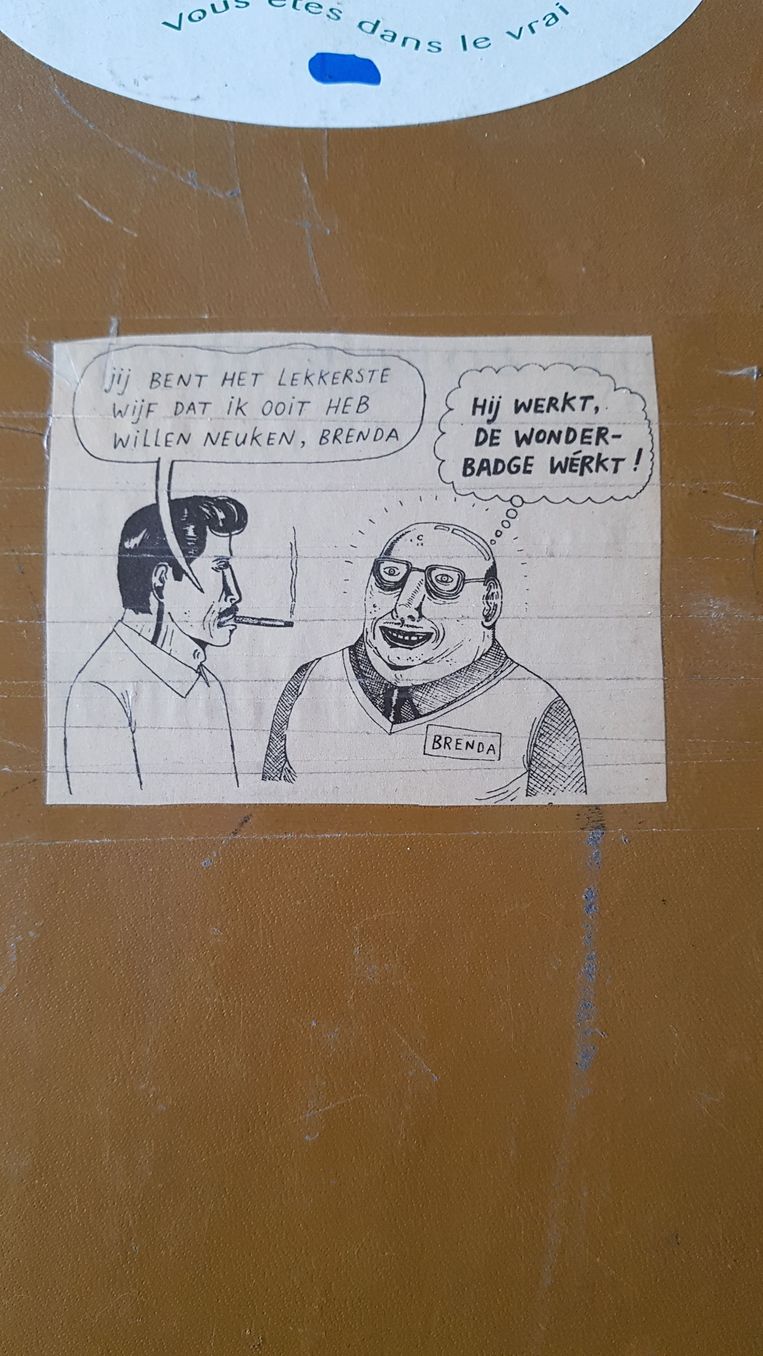 vous êtes dans le vrai
jij BENT HET LEKKERSTE
WijF DAT iK OOiT HEB
WiLLEN NEUKEN, BRENDA
Hij WERKT,
DE WONDER-
BADGE WÉRKT!
BRENDA